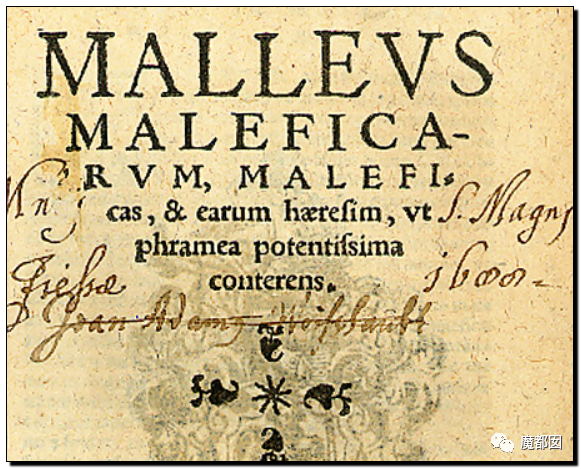 MALLEVS
MALEFICA-
RVM, MALEFI-
cas, & earum hæresim, vt
phramea potentissima
conterens.
S. Magni
1600
Joan Adam
魔都囡